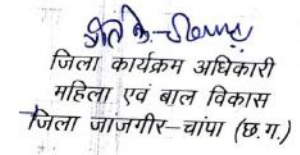 जिला कार्यक्रम अधिकारी
महिला एवं बाल विकास
जिला जांजगीर–चांपा (छ.ग.)